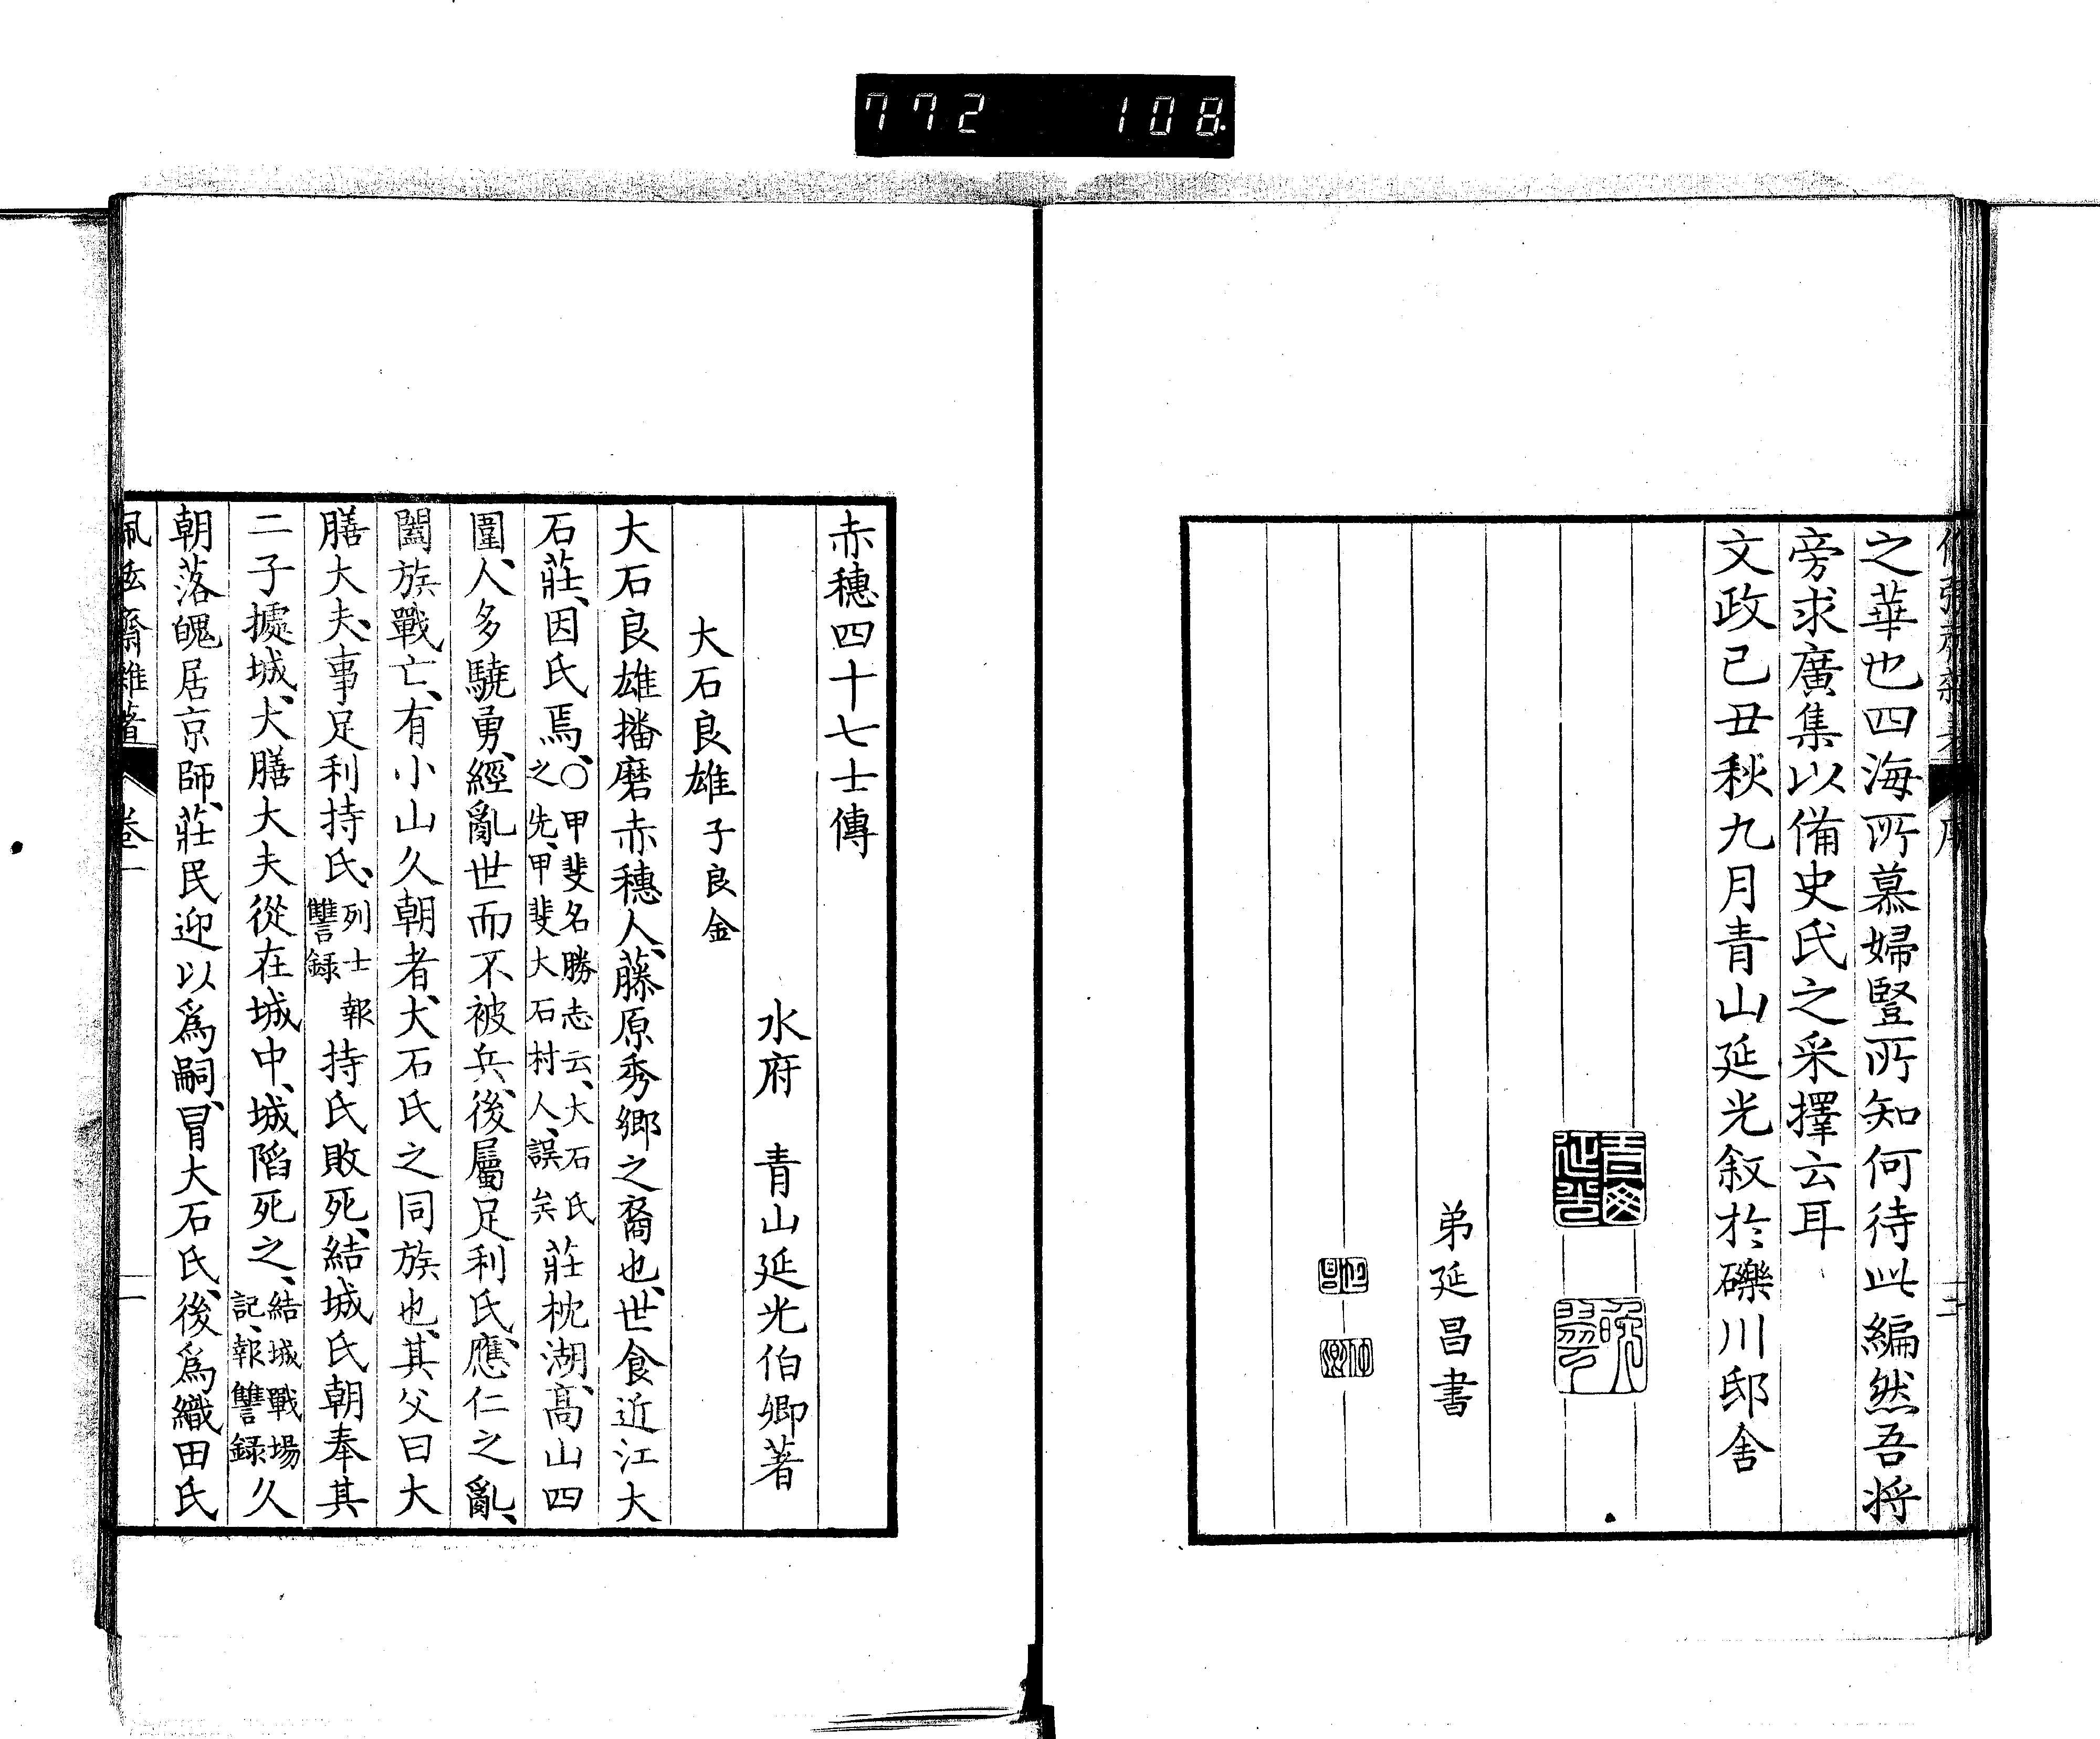 772 108
之華也四海所慕婦豎所知何待此編然吾將
旁求廣集以備史氏之采擇云耳
文政己丑秋九月青山延光叙於礫川邸舍
弟延昌書
赤穗四十七士傳
水府 青山延光伯卿著
大石良雄 子良金
大石良雄播磨赤穗人、藤原秀鄉之裔也、世食近江大
石莊、因氏焉、〇甲斐名勝志云、大石氏之先、甲斐大石村人、誤矣莊枕湖、高山四
圍、人多驍勇、經亂世而不被兵、後屬足利氏、應仁之亂、
闔族戰亡、有小山久朝者、大石氏之同族也、其父曰大
膳大夫、事足利持氏、列士報讐録持氏敗死、結城氏朝奉其
二子據城、大膳大夫從在城中、城陷死之、結城戰場記、報讐録久
朝落魄居京師、莊民迎以爲嗣、冒大石氏、後爲織田氏
佩弦齋雜著 卷一 一